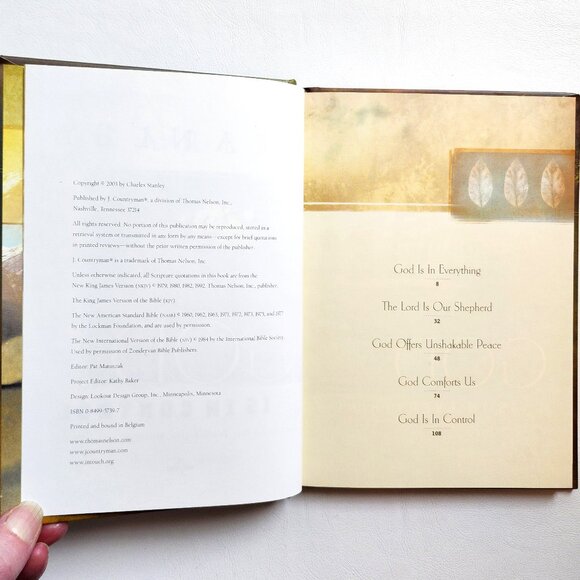 Copyright © 2003 by Charles Stanley
Published by J. Countryman®, a division of Thomas Nelson, Inc.,
Nashville, Tennessee 37214
All rights reserved. No portion of this publication may be reproduced, stored in a
retrieval system or transmitted in any form by any means—except for brief quotations
in printed reviews—without the prior written permission of the publisher.
J. Countryman® is a trademark of Thomas Nelson, Inc.
Unless otherwise indicated, all Scripture quotations in this book are from the
New King James Version (NKJV) © 1979, 1980, 1982, 1992, Thomas Nelson, Inc., publisher.
The King James Version of the Bible (KJV).
The New American Standard Bible (NASB) © 1960, 1962, 1963, 1971, 1972, 1973, 1975, and 1977
by the Lockman Foundation, and are used by permission.
The New International Version of the Bible (NIV) © 1984 by the International Bible Society.
Used by permission of Zondervan Bible Publishers.
Editor: Pat Matuszak
Project Editor: Kathy Baker
Design: Lookout Design Group, Inc., Minneapolis, Minnesota
ISBN 0-8499-5739-7
Printed and bound in Belgium
www.thomasnelson.com
www.jcountryman.com
www.intouch.org
God Is In Everything
8
The Lord Is Our Shepherd
32
God Offers Unshakable Peace
48
God Comforts Us
74
God Is In Control
108